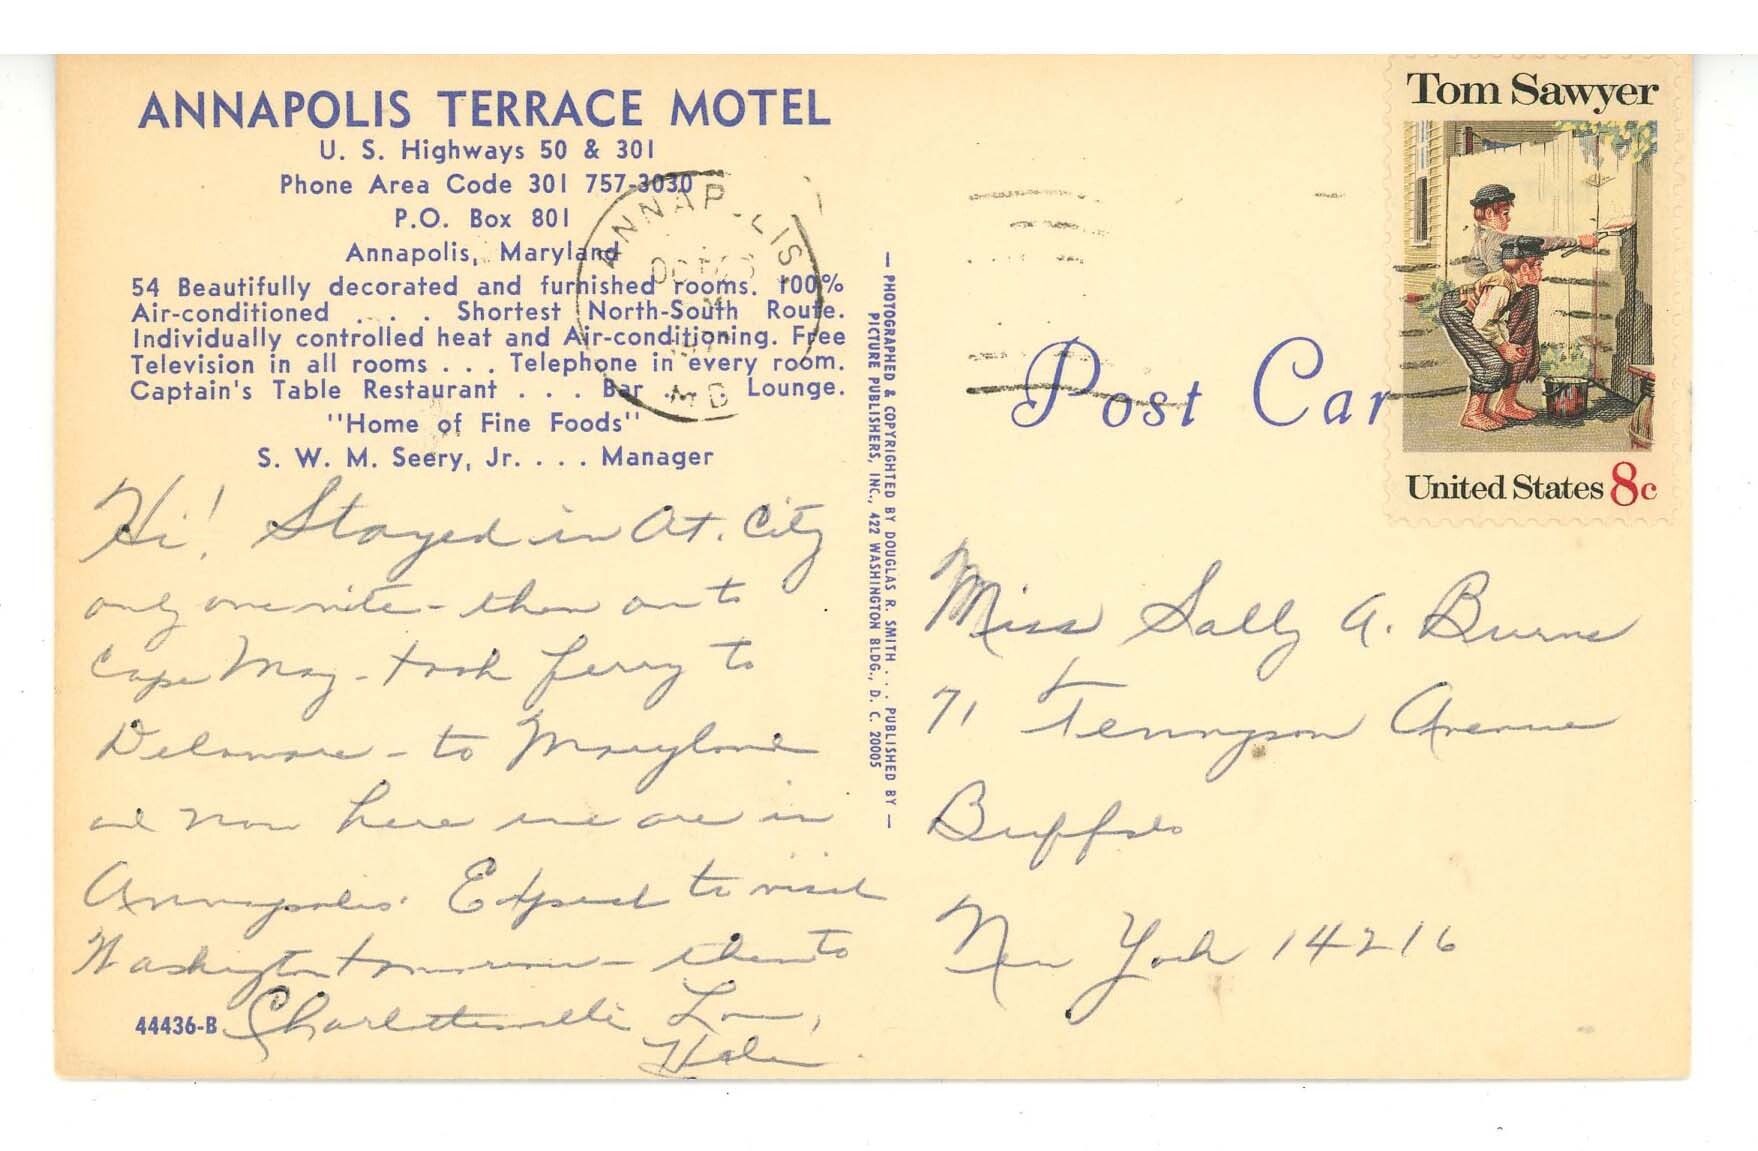 ANNAPOLIS TERRACE MOTEL
U. S. Highways 50 & 301
Phone Area Code 301 757-3030
P.O. Box 801
Annapolis, Maryland
54 Beautifully decorated and furnished rooms. 100%
Air-conditioned . . . . Shortest North-South Route.
Individually controlled heat and Air-conditioning. Free
Television in all rooms . . . Telephone in every room.
Captain's Table Restaurant . . . Bar . . . Lounge.
"Home of Fine Foods"
S. W. M. Seery, Jr. . . . Manager
Hi! Stayed in At. City
only one nite - then on to
Cape May - took ferry to
Delaware - to Maryland
and now here we are in
Annapolis. Expect to visit
Washington tomorrow - then to
Charlottesville Love,
Helen
44436-B
— PHOTOGRAPHED & COPYRIGHTED BY DOUGLAS R. SMITH . . . PUBLISHED BY —
PICTURE PUBLISHERS, INC., 422 WASHINGTON BLDG., D. C. 20005
ANNAP LIS
MD
Post Car
Tom Sawyer
United States 8c
Miss Sally A. Burns
71 Tennyson Avenue
Buffalo
New York 14216